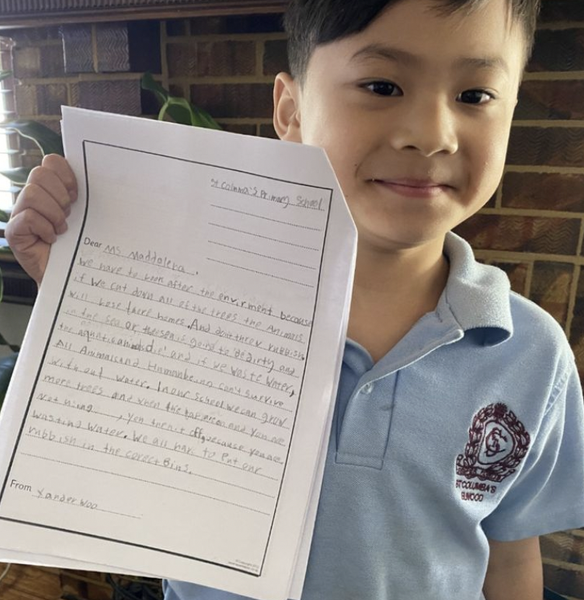 St Colmna's Primary School
Dear Ms Maddalena,
We have to look after the envirment because
if we cut down all of the trees the animals
will lose there homes. And don't throw rubbish
in the sea or the sea is going to be dirty and
the aquatic animals and if we waste water,
All Animals and Humanbeing can't survive
without water. In our school we can grow
more trees and when the tap is on and you are
not using, you turn it off because you are
wasting water. We all have to put our
rubbish in the corect Bins.
From Xander Woo
ST COLUMBA'S
ELWOOD